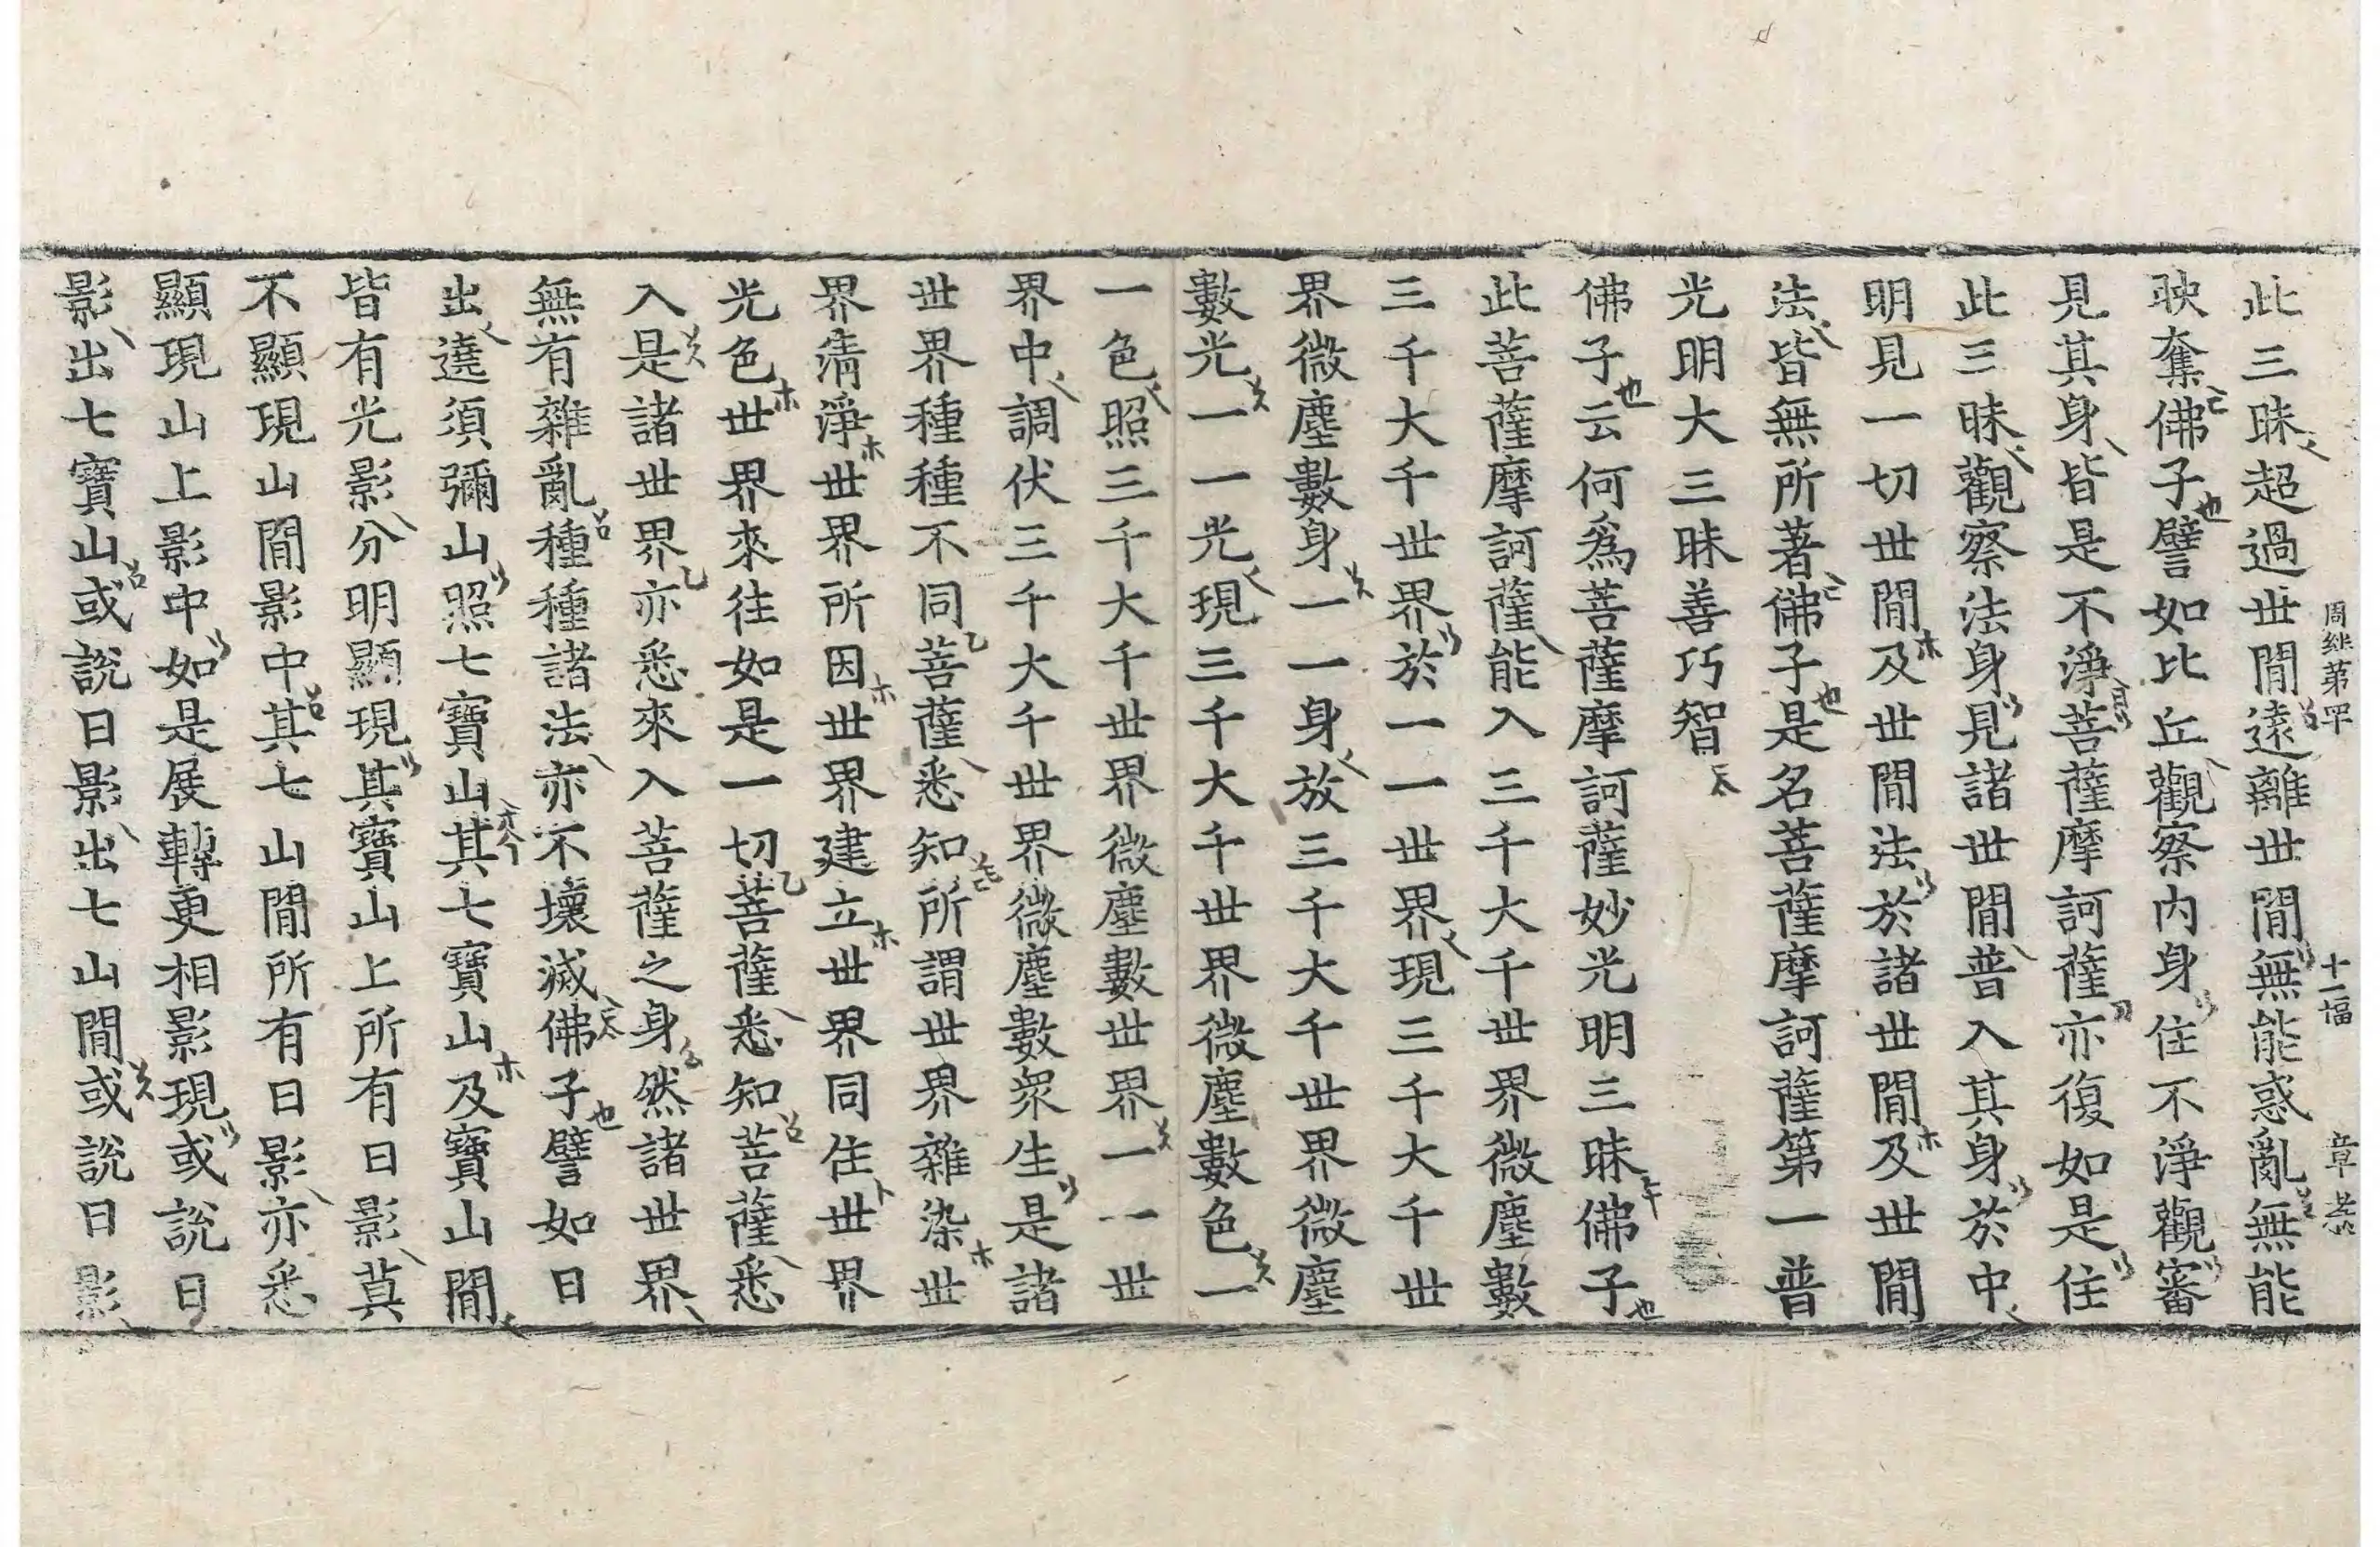 周經第四十 十一幅 章恭
此三昧超過世間遠離世間無能惑亂無能
映奪佛子譬如比丘觀察內身住不淨觀審
見其身皆是不淨菩薩摩訶薩亦復如是住
此三昧觀察法身見諸世間普入其身於中
明見一切世間及世間法於諸世間及世間
法皆無所著佛子是名菩薩摩訶薩第一普
光明大三昧善巧智
佛子云何爲菩薩摩訶薩妙光明三昧佛子
此菩薩摩訶薩能入三千大千世界微塵數
三千大千世界於一一世界現三千大千世
界微塵數身一一身放三千大千世界微塵
數光一一光現三千大千世界微塵數色一
一色照三千大千世界微塵數世界一一世
界中調伏三千大千世界微塵數衆生是諸
世界種種不同菩薩悉知所謂世界雜染世
界清淨世界所因世界建立世界同住世界
光色世界來往如是一切菩薩悉知菩薩悉
入是諸世界亦悉來入菩薩之身然諸世界
無有雜亂種種諸法亦不壞滅佛子譬如日
出遶須彌山照七寶山其七寶山及寶山間
皆有光影分明顯現其寶山上所有日影莫
不顯現山間影中其七山間所有日影亦悉
顯現山上影中如是展轉更相影現或說日
影出七寶山或說日影出七山間或說日影